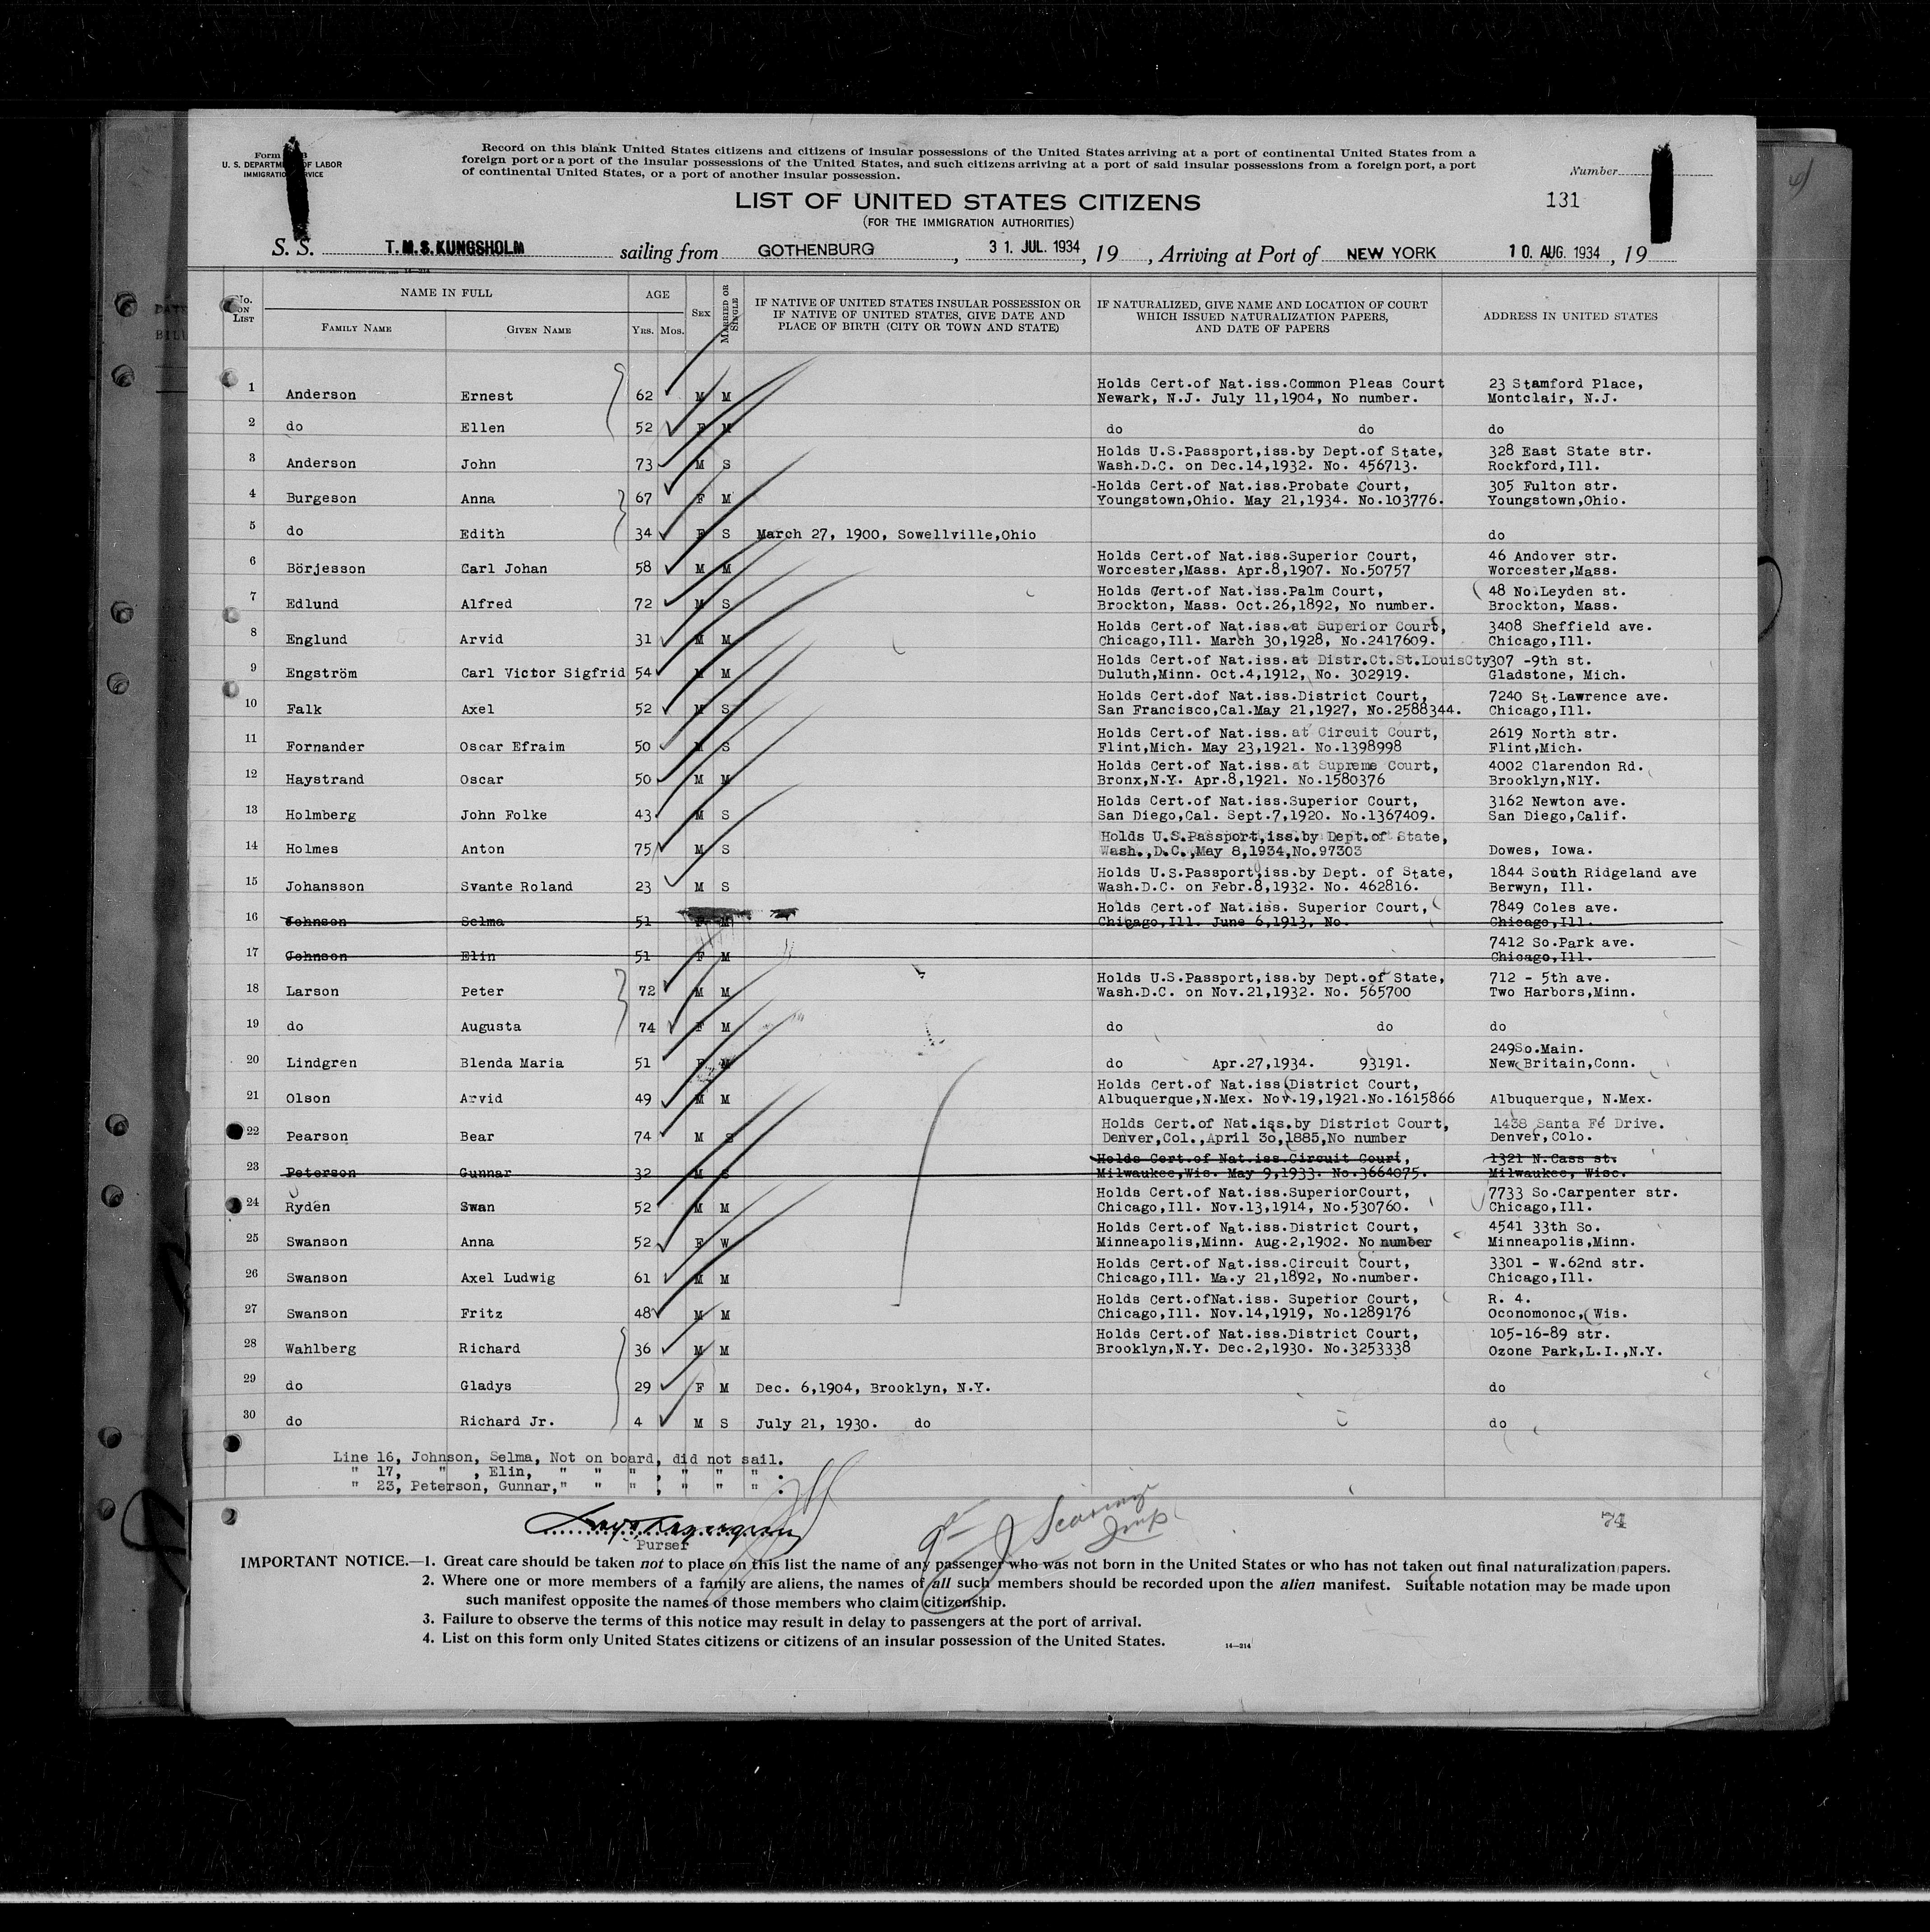 Form
U. S. DEPARTMENT OF LABOR
IMMIGRATION SERVICE
Record on this blank United States citizens and citizens of insular possessions of the United States arriving at a port of continental United States from a
foreign port or a port of the insular possessions of the United States, and such citizens arriving at a port of said insular possessions from a foreign port, a port
of continental United States, or a port of another insular possession.
Number
131
LIST OF UNITED STATES CITIZENS
(FOR THE IMMIGRATION AUTHORITIES)
S. S. T.M.S.KUNGSHOLM sailing from GOTHENBURG, 31. JUL. 1934, 19 , Arriving at Port of NEW YORK 10. AUG. 1934, 19
No. ON LIST
NAME IN FULL
FAMILY NAME GIVEN NAME
AGE
YRS. MOS.
SEX
MARRIED OR SINGLE
IF NATIVE OF UNITED STATES INSULAR POSSESSION OR
IF NATIVE OF UNITED STATES, GIVE DATE AND
PLACE OF BIRTH (CITY OR TOWN AND STATE)
IF NATURALIZED, GIVE NAME AND LOCATION OF COURT
WHICH ISSUED NATURALIZATION PAPERS,
AND DATE OF PAPERS
ADDRESS IN UNITED STATES
Holds Cert.of Nat.iss.Common Pleas Court 23 Stamford Place,
1 Anderson Ernest 62 M M Newark, N.J. July 11,1904, No number. Montclair, N.J.
2 do Ellen 52 F M do do do
Holds U.S.Passport,iss.by Dept.of State, 328 East State str.
3 Anderson John 73 M S Wash.D.C. on Dec.14,1932. No. 456713. Rockford,Ill.
-Holds Cert.of Nat.iss.Probate Court, 305 Fulton str.
4 Burgeson Anna 67 F M Youngstown,Ohio. May 21,1934. No.103776. Youngstown,Ohio.
5 do Edith 34 F S March 27, 1900, Sowellville,Ohio do
Holds Cert.of Nat.iss.Superior Court, 46 Andover str.
6 Börjesson Carl Johan 58 M M Worcester,Mass. Apr.8,1907. No.50757 Worcester,Mass.
Holds Cert.of Nat.iss.Palm Court, 48 No.Leyden st.
7 Edlund Alfred 72 M S Brockton, Mass. Oct.26,1892, No number. Brockton, Mass.
Holds Cert.of Nat.iss.at Superior Court, 3408 Sheffield ave.
8 Englund Arvid 31 M M Chicago,Ill. March 30,1928, No.2417609. Chicago,Ill.
Holds Cert.of Nat.iss.at Distr.Ct.St.LouisCty 307 -9th st.
9 Engström Carl Victor Sigfrid 54 M M Duluth,Minn. Oct.4,1912, No. 302919. Gladstone, Mich.
Holds Cert.dof Nat.iss.District Court, 7240 St.Lawrence ave.
10 Falk Axel 52 M S San Francisco,Cal.May 21,1927, No.2588344. Chicago,Ill.
Holds Cert.of Nat.iss.at Circuit Court, 2619 North str.
11 Fornander Oscar Efraim 50 M S Flint,Mich. May 23,1921. No.1398998 Flint,Mich.
Holds Cert.of Nat.iss.at Supreme Court, 4002 Clarendon Rd.
12 Haystrand Oscar 50 M M Bronx,N.Y. Apr.8,1921. No.1580376 Brooklyn,N1Y.
Holds Cert.of Nat.iss.Superior Court, 3162 Newton ave.
13 Holmberg John Folke 43 M S San Diego,Cal. Sept.7,1920. No.1367409. San Diego,Calif.
Holds U.S.Passport,iss.by Dept.of State,
14 Holmes Anton 75 M S Wash.,D.C.,May 8,1934,No.97303 Dowes, Iowa.
Holds U.S.Passport,iss.by Dept. of State, 1844 South Ridgeland ave
15 Johansson Svante Roland 23 M S Wash.D.C. on Febr.8,1932. No. 462816. Berwyn, Ill.
Holds Cert.of Nat.iss. Superior Court, 7849 Coles ave.
16 Johnson Selma 51 F M Chicago,Ill. June 6,1913, No. Chicago,Ill.
7412 So.Park ave.
17 Johnson Elin 51 F M Chicago,Ill.
Holds U.S.Passport,iss.by Dept.of State, 712 - 5th ave.
18 Larson Peter 72 M M Wash.D.C. on Nov.21,1932. No. 565700 Two Harbors,Minn.
19 do Augusta 74 F M do do do
249So.Main.
20 Lindgren Blenda Maria 51 F M do Apr.27,1934. 93191. New Britain,Conn.
Holds Cert.of Nat.iss District Court,
21 Olson Arvid 49 M M Albuquerque,N.Mex. Nov.19,1921.No.1615866 Albuquerque, N.Mex.
Holds Cert.of Nat.iss.by District Court, 1438 Santa Fé Drive.
22 Pearson Bear 74 M S Denver,Col.,April 30,1885,No number Denver,Colo.
Holds Cert.of Nat.iss.Circuit Court, 1321 N.Cass st.
23 Peterson Gunnar 32 M S Milwaukee,Wis. May 9,1933. No.3664075. Milwaukee, Wisc.
Holds Cert.of Nat.iss.SuperiorCourt, 7733 So.Carpenter str.
24 Ryden Swan 52 M M Chicago,Ill. Nov.13,1914, No.530760. Chicago,Ill.
Holds Cert.of Nat.iss.District Court, 4541 33th So.
25 Swanson Anna 52 F W Minneapolis,Minn. Aug.2,1902. No number Minneapolis,Minn.
Holds Cert.of Nat.iss.Circuit Court, 3301 - W.62nd str.
26 Swanson Axel Ludwig 61 M M Chicago,Ill. Ma.y 21,1892, No.number. Chicago,Ill.
Holds Cert.ofNat.iss. Superior Court, R. 4.
27 Swanson Fritz 48 M M Chicago,Ill. Nov.14,1919, No.1289176 Oconomonoc, Wis.
Holds Cert.of Nat.iss.District Court, 105-16-89 str.
28 Wahlberg Richard 36 M M Brooklyn,N.Y. Dec.2,1930. No.3253338 Ozone Park,L.I.,N.Y.
29 do Gladys 29 F M Dec. 6,1904, Brooklyn, N.Y. do
30 do Richard Jr. 4 M S July 21, 1930. do do
Line 16, Johnson, Selma, Not on board, did not sail.
" 17, " , Elin, " " " , " " " .
" 23, Peterson, Gunnar," " " , " " " .
Purser
74
IMPORTANT NOTICE.—1. Great care should be taken not to place on this list the name of any passenger who was not born in the United States or who has not taken out final naturalization papers.
2. Where one or more members of a family are aliens, the names of all such members should be recorded upon the alien manifest. Suitable notation may be made upon
such manifest opposite the names of those members who claim citizenship.
3. Failure to observe the terms of this notice may result in delay to passengers at the port of arrival.
4. List on this form only United States citizens or citizens of an insular possession of the United States.
14—314